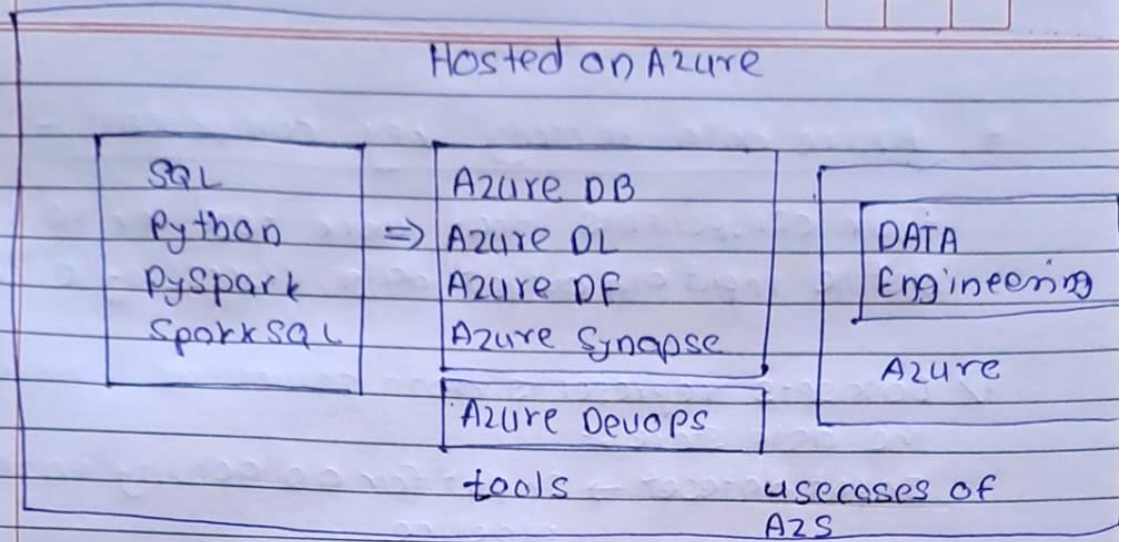 Hosted on Azure
SQL
Python
PySpark
SparkSQL
=>
Azure DB
Azure DL
Azure DF
Azure Synapse
Azure Devops
tools
DATA
Engineering
Azure
usecases of
AZS